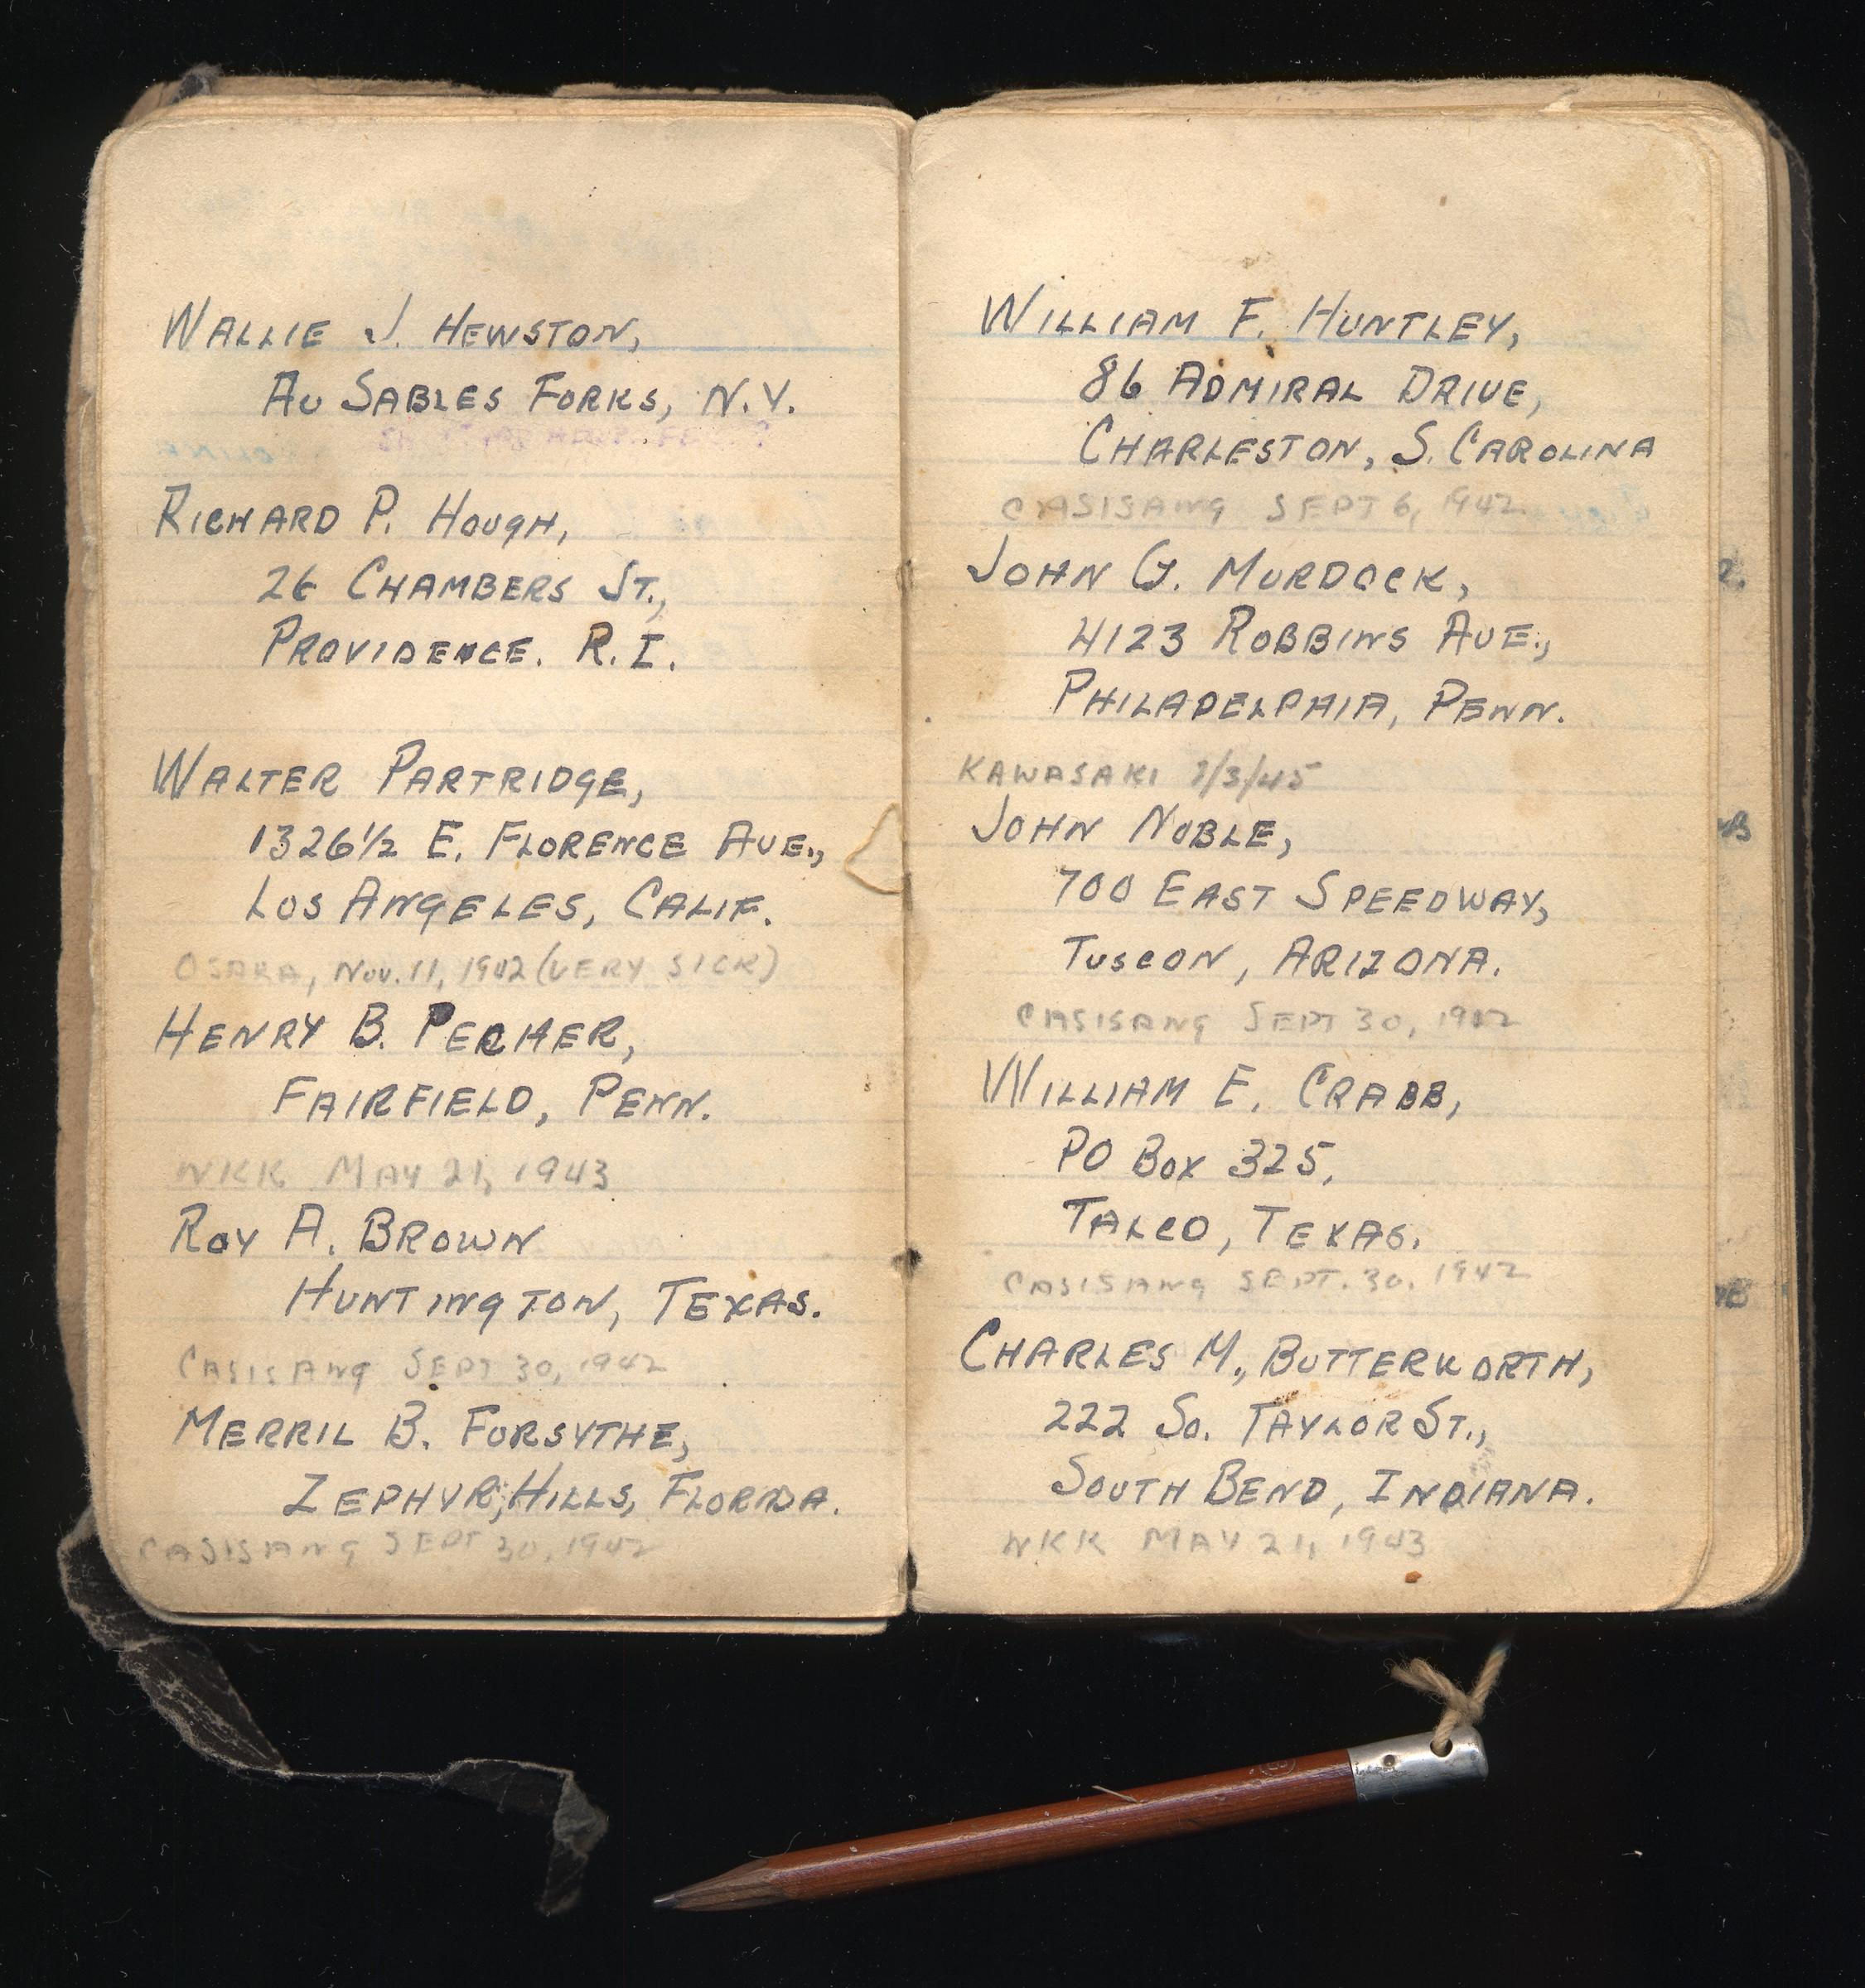 WALLIE J. HEWSTON,
AU SABLES FORKS, N.Y.
RICHARD P. HOUGH,
26 CHAMBERS ST.,
PROVIDENCE. R.I.
WALTER PARTRIDGE,
1326½ E. FLORENCE AVE.,
LOS ANGELES, CALIF.
OSAKA, NOV. 11, 1942 (VERY SICK)
HENRY B. PECHER,
FAIRFIELD, PENN.
WKK MAY 21, 1943
ROY A. BROWN
HUNTINGTON, TEXAS.
CASISANG SEPT 30, 1942
MERRIL B. FORSYTHE,
ZEPHYR, HILLS, FLORIDA.
CASISANG SEPT 30, 1942
WILLIAM F. HUNTLEY,
86 ADMIRAL DRIVE,
CHARLESTON, S. CAROLINA
CASISANG SEPT 6, 1942
JOHN G. MURDOCK,
4123 ROBBINS AVE.,
PHILADELPHIA, PENN.
KAWASAKI /3/45
JOHN NOBLE,
700 EAST SPEEDWAY,
TUSCON, ARIZONA.
CASISANG SEPT 30, 1942
WILLIAM E. CRABB,
PO BOX 325,
TALCO, TEXAS.
CASISANG SEPT. 30, 1942
CHARLES M., BUTTERWORTH,
222 SO. TAYLOR ST.,
SOUTH BEND, INDIANA.
WKK MAY 21, 1943